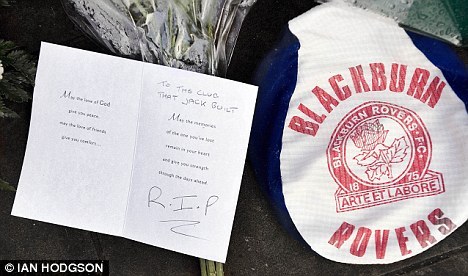 May the love of God
give you peace.
may the love of friends
give you comfort...
TO THE CLUB
THAT JACK BUILT
May the memories
of the one you've lost
remain in your heart
and give you strength
through the days ahead
R.I.P
BLACKBURN
BLACKBURN ROVERS F.C.
18 75
ARTE ET LABORE
ROVERS
© IAN HODGSON